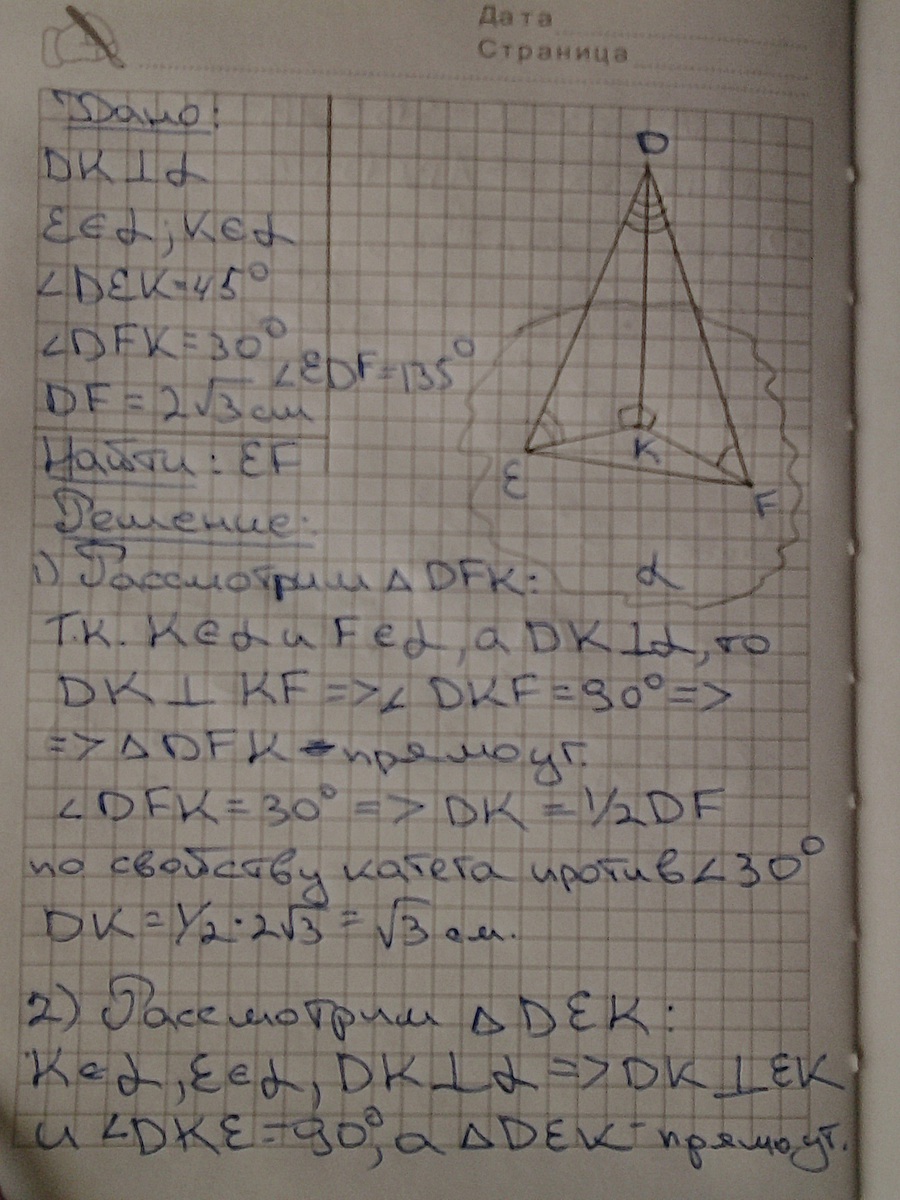 Дата
Страница
Дано:
DK⊥α
E∈α; K∈α
∠DEK=45°
∠DFK=30°
∠EDF=135°
DF=2√3 см
Найти: EF
D
E
K
F
α
Решение:
1) Рассмотрим △DFK:
т.к. K∈α и F∈α, а DK⊥α, то
DK ⊥ KF => ∠DKF=90° =>
=> △DFK - прямоуг.
∠DFK=30° => DK = 1/2DF
по свойству катета против ∠30°
DK = 1/2·2√3 = √3 см.
2) Рассмотрим △DEK:
K∈α, E∈α, DK⊥α => DK⊥EK
и ∠DKE=90°, а △DEK - прямоуг.